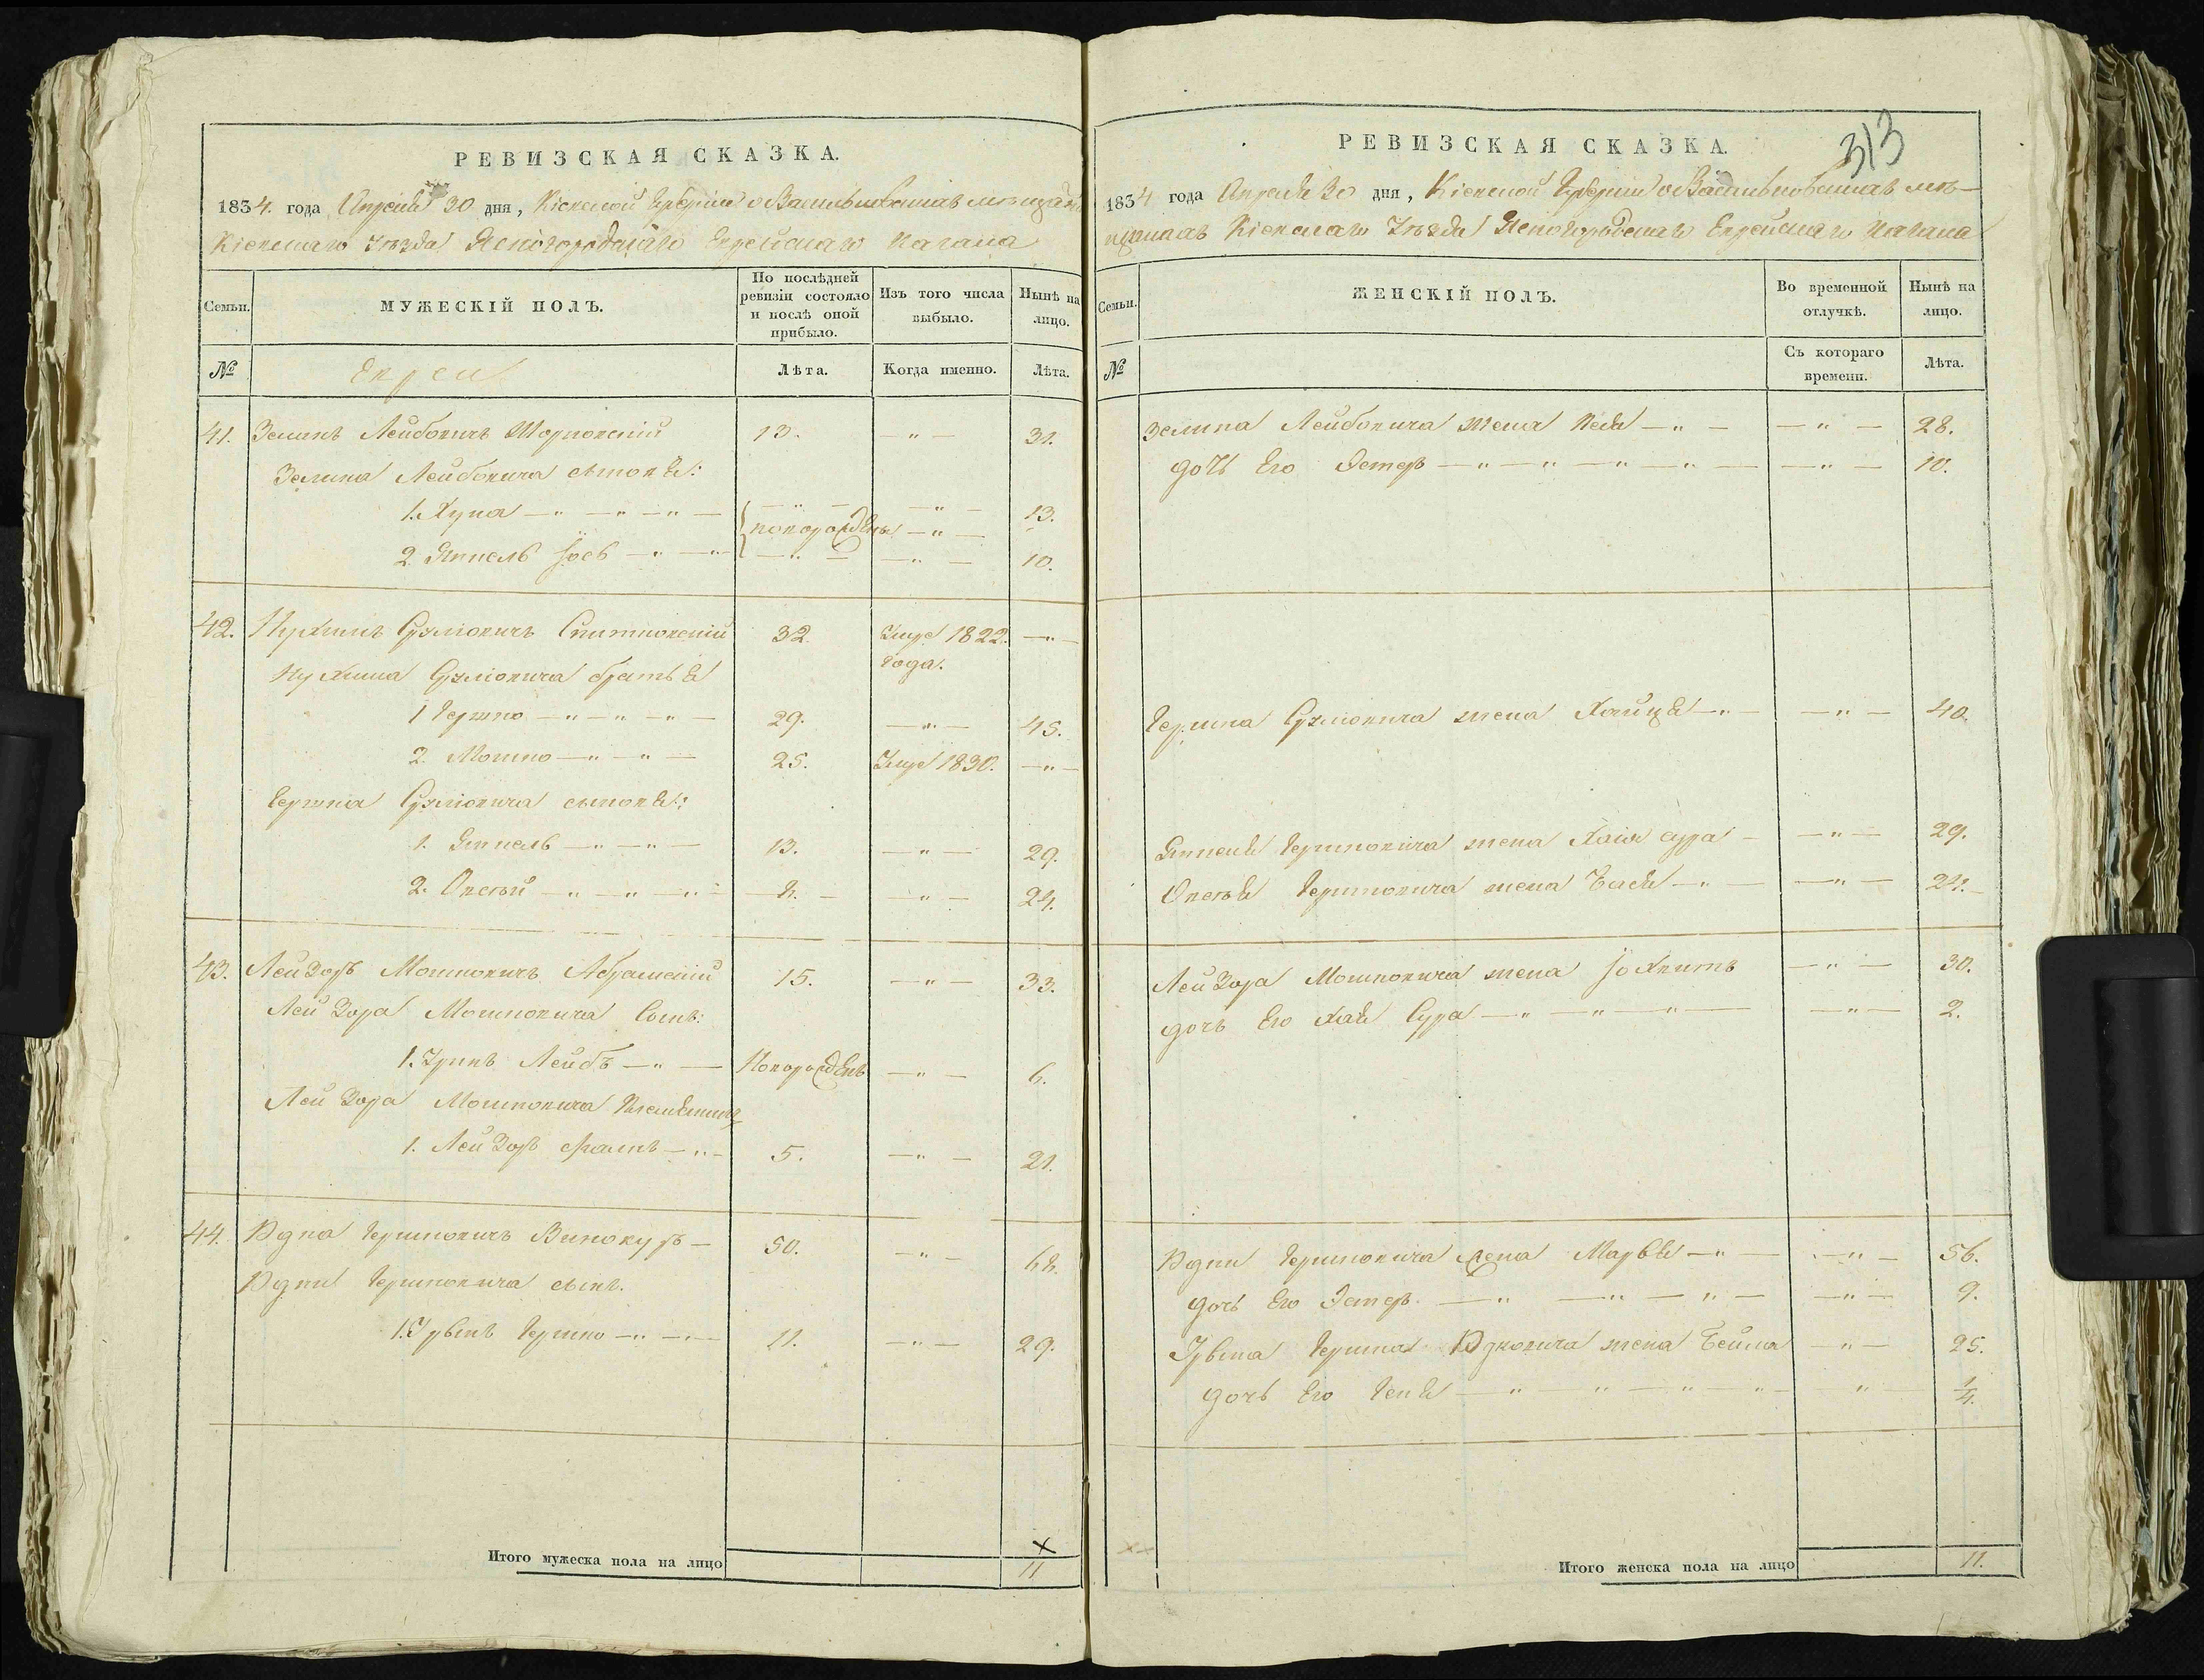 РЕВИЗСКАЯ СКАЗКА.
1834. года Апреля 30 дня, Кіевской Губерніи о Васильковскихъ мѣщан
Кіевскаго Уѣзда Ясногородскаго Еврейскаго Кагала
Семьи.
МУЖЕСКІЙ ПОЛЪ.
По послѣдней ревизіи состояло и послѣ оной прибыло.
Изъ того числа выбыло.
Нынѣ на лицо.
№
Евреи
Лѣта.
Когда именно.
Лѣта.
41. Зеликъ Лейбовичъ 13. — " — 31.
Зелика Лейбовича сыновья:
1. Хуна — " — " — " — — " — — " — 13.
новорожденые — " —
2. Янкель Іось — " — " — — " — — " — 10.
42. Нухимъ Сруліовичъ 32. Умре 1822. — " —
года.
Нухима Сруліовича братья
1 Гершко — " — " — " — 29. — " — 45.
2. Мошко — " — " — 25. Умре 1830. — " —
Гершка Сруліовича сыновья:
1. Янкель — " — " — 13. — " — 29.
2. Овсѣй — " — " — " — 8. — — " — 24.
43. Лейзоръ Мошковичъ Абрамскій 15. — " — 33.
Лейзора Мошковича Сынъ:
1. Урикъ Лейбъ — " — Новорожденъ — " — 6.
Лейзора Мошковича Племянникъ
1. Лейзоръ — " — 5. — " — 21.
44. Юдка Гершковичъ Винокуръ — 50. — " — 68.
Юдки Гершковича сынъ.
1. Гершко — " — " — 11. — " — 29.
Итого мужеска пола на лицо
×
11
313
РЕВИЗСКАЯ СКАЗКА.
1834 года Апреля 30 дня, Кіевской Губерніи о Васильковскихъ мѣ—
щанахъ Кіевскаго Уѣзда Ясногородскаго Еврейскаго Кагала
Семьи.
ЖЕНСКІЙ ПОЛЪ.
Во временной отлучкѣ.
Нынѣ на лицо.
№
Съ котораго времени.
Лѣта.
Зелика Лейбовича жена — " — — " — 28.
дочь Его Эстеръ — " — " — " — " — — " — 10.
Гершка Сруліовича жена Хайця — " — — " — 40.
Янкеля Гершковича жена Хаія сура — — " — 29.
Овсѣя Гершковича жена Бася — " — — " — 24. —
Лейзора Мошковича жена — " — 30.
дочь Его Хая Сура — " — " — " — — " — 2.
Юдки Гершковича жена Марья — " — — " — 56.
дочь Его Эстеръ. — " — " — " — — " — 9.
Гершка Юдковича жена Бейла — " — 25.
дочь Его Геня — " — " — " — " — " 1/4.
Итого женска пола на лицо
11.